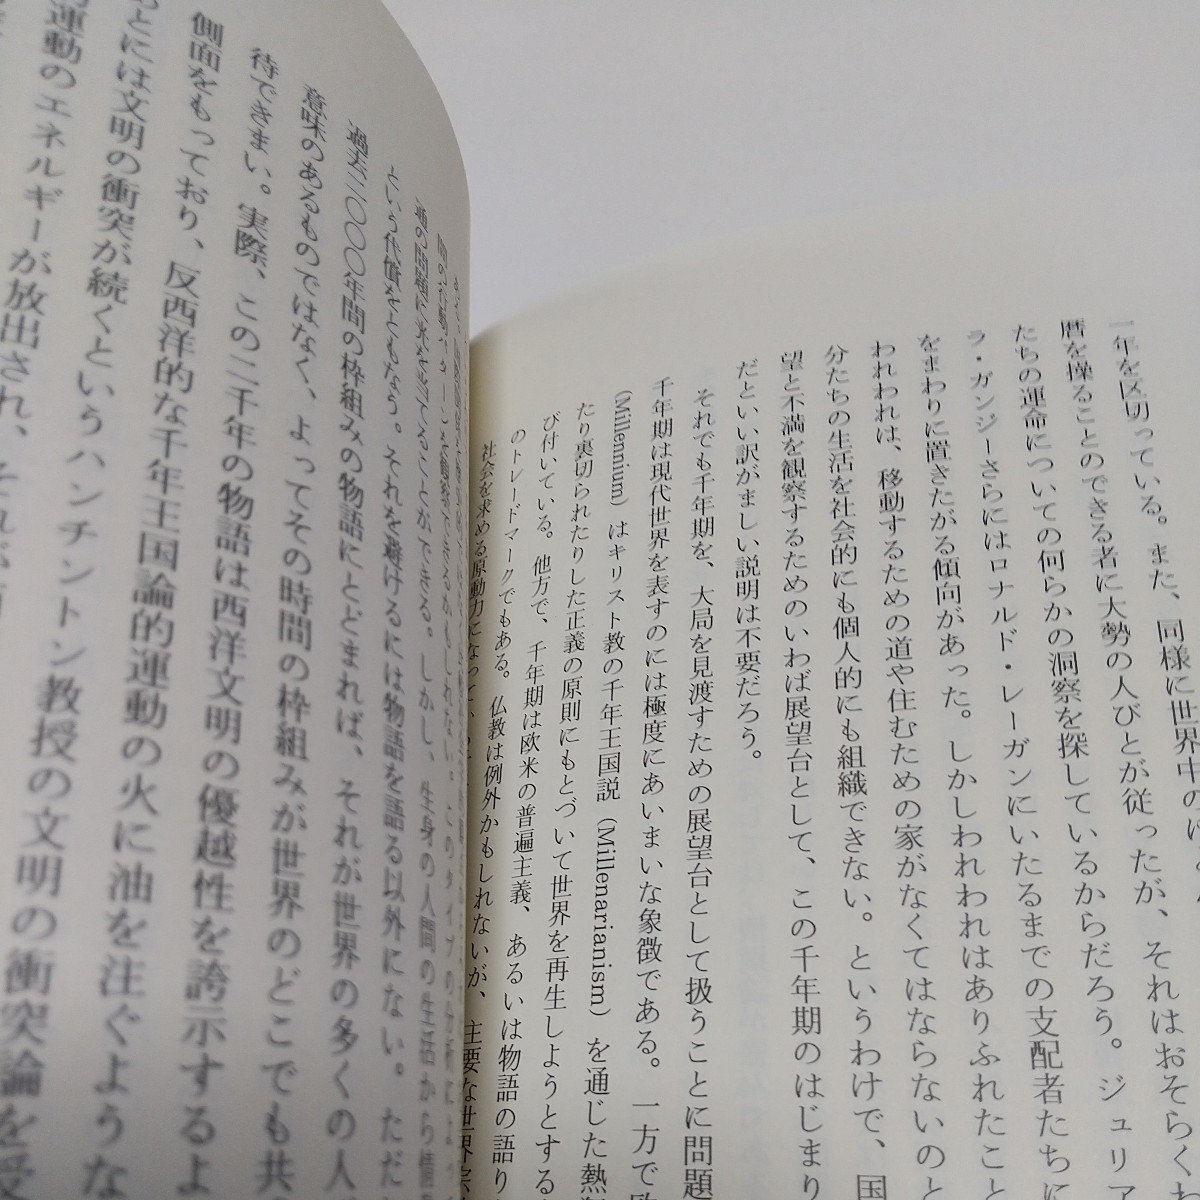 一年を区切っている。また、同様に世界中の
暦を操ることのできる者に大勢の人びとが従ったが、それはおそらく
たちの運命についての何らかの洞察を探しているからだろう。ジュリア
ラ・ガンジーさらにはロナルド・レーガンにいたるまでの支配者たちに
をまわりに置きたがる傾向があった。しかしわれわれはありふれたこと
われわれは、移動するための道や住むための家がなくてはならないのと
分たちの生活を社会的にも個人的にも組織できない。というわけで、国
望と不満を観察するためのいわば展望台として、この千年期のはじまり
だといい訳がましい説明は不要だろう。
それでも千年期を、大局を見渡すための展望台として扱うことに問題
千年期は現代世界を表すのには極度にあいまいな象徴である。一方で欧
(Millennium)はキリスト教の千年王国説(Millenarianism)を通じた熱
たり裏切られたりした正義の原則にもとづいて世界を再生しようとする
び付いている。他方で、千年期は欧米の普遍主義、あるいは物語の語り
のトレードマークでもある。仏教は例外かもしれないが、主要な世界宗
社会を求める原動力になって
通の問題に光を当てることができる。しかし、生身の人間の生活から
という代償をともなう。それを避けるには物語を語る以外にない。ただ
過去二〇〇〇年間の枠組みの物語にとどまれば、それが世界の多くの人
意味のあるものではなく、よってその時間の枠組みが世界のどこでも共
待できまい。実際、この二千年の物語は西洋文明の優越性を誇示するよ
側面をもっており、反西洋的な千年王国論的運動の火に油を注ぐような
とには文明の衝突が続くというハンチントン教授の文明の衝突論を受
運動のエネルギーが放出され、それが